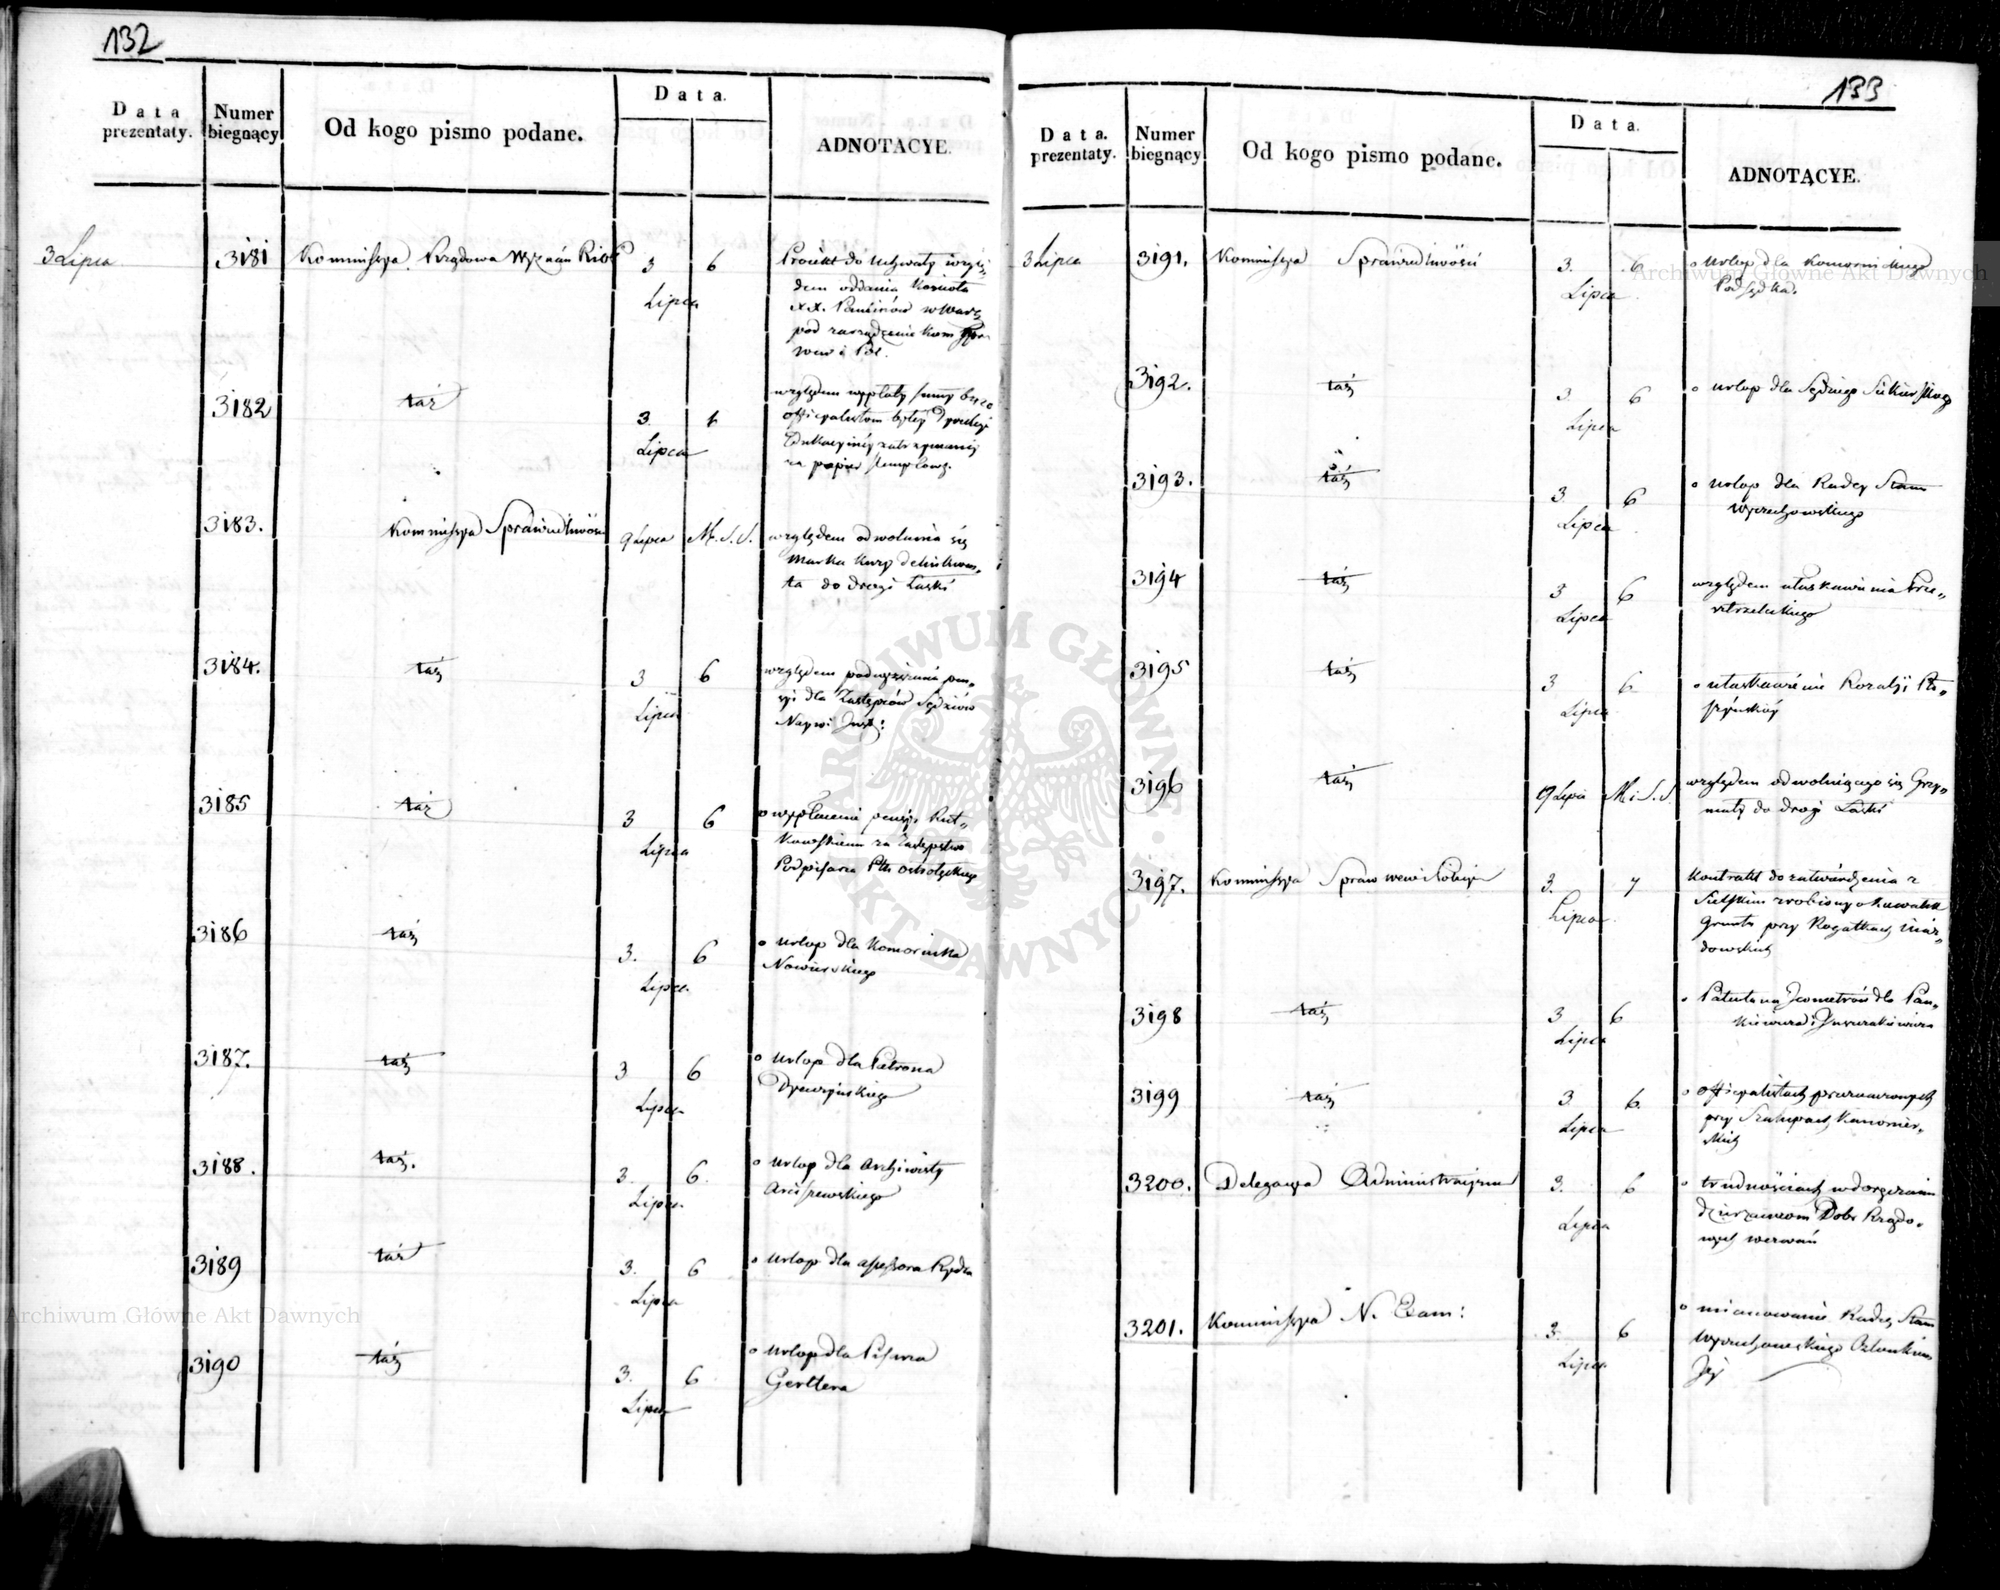 132
Data prezentaty.
Numer biegnący
Od kogo pismo podane.
Data.
ADNOTACYE.
3 Lipca 3181 Kommissya Rządowa Wyznań Rel 3 Lipca 6 Proiekt do Uchwały wzglę
dem oddania Kościoła
XX. Paulinów w Warsz
pod zarządzenie Kom Spra
wew i Pol.
3182 taż 3. Lipca 6 względem wypłaty summy
officyalistom byłey Dyrekcyi
Edukacyiney zatrzymaney
na papier stemplowy.
3183. Kommissya Sprawiedliwości 9 Lipca M.S.S. względem odwołania się
Marka Kury delinkwen„
ta do drogi Łaski
3184. taż 3 Lipca 6 względem podwyższenia pen„
syi dla Zastępców Sędziów
Nayw: Inst:
3185 taż 3 Lipca 6 o wypłacenie pensyi Rut„
kowskiemu za Zastępstwo
Podpisarza
3186 taż 3. Lipca. 6 o urlop dla Komornika
Nowierskiego
3187. taż 3 Lipca 6 o urlop dla Patrona
3188. taż. 3. Lipca. 6. o urlop dla Archiwisty
Arciszewskiego
3189 taż 3. Lipca 6 o urlop dla assessora Rydla
3190 taż 3. Lipca 6 o urlop dla Pisarza
Gerltera
133
Data. prezentaty.
Numer biegnący
Od kogo pismo podane.
Data.
ADNOTACYE.
3 Lipca 3191. Kommissya Sprawiedliwości 3. Lipca 6 o urlop dla Komornickiego
Podsędka.
3192. taż 3 Lipca 6 o urlop dla Sędziego
3193. taż 3. Lipca 6 o urlop dla Radcy Stanu
Wyczechowskiego
3194 taż 3 Lipca 6 względem ułaskawienia Prze„
strzelskiego
3195 taż 3 Lipca 6 o ułaskawienie Rozalyi
3196 taż 9 Lipca M.S.S. względem odwołuiącego się Grzy„
mały do drogi Łaski
3197. Kommissya Spraw wew i Policyi 3. Lipca 7 Kontrakt do zatwierdzenia z
zrobiony o kawałek
Gruntu przy Rogatkach Miaz„
dowskich
3198 taż 3 Lipca 6 o Patenta na Jeometrów dla Pan„
kiewicza i
3199 taż 3 Lipca 6. o officyalistach przeznaczonych
przy Szalupach Kanonier„
skich
3200. Delegacya Administracyina 3. Lipca 6 o trudnościach w doręczeniu
dzierżawcom Dóbr Rządo„
wych wezwań
3201. Kommissya N. Exam: 3. Lipca 6 o mianowanie Radcy Stanu
Wyczechowskiego Członkiem
Jey
Archiwum Główne Akt Dawnych
Archiwum Główne Akt Dawnych
ARCHIWUM GŁÓWNE AKT DAWNYCH